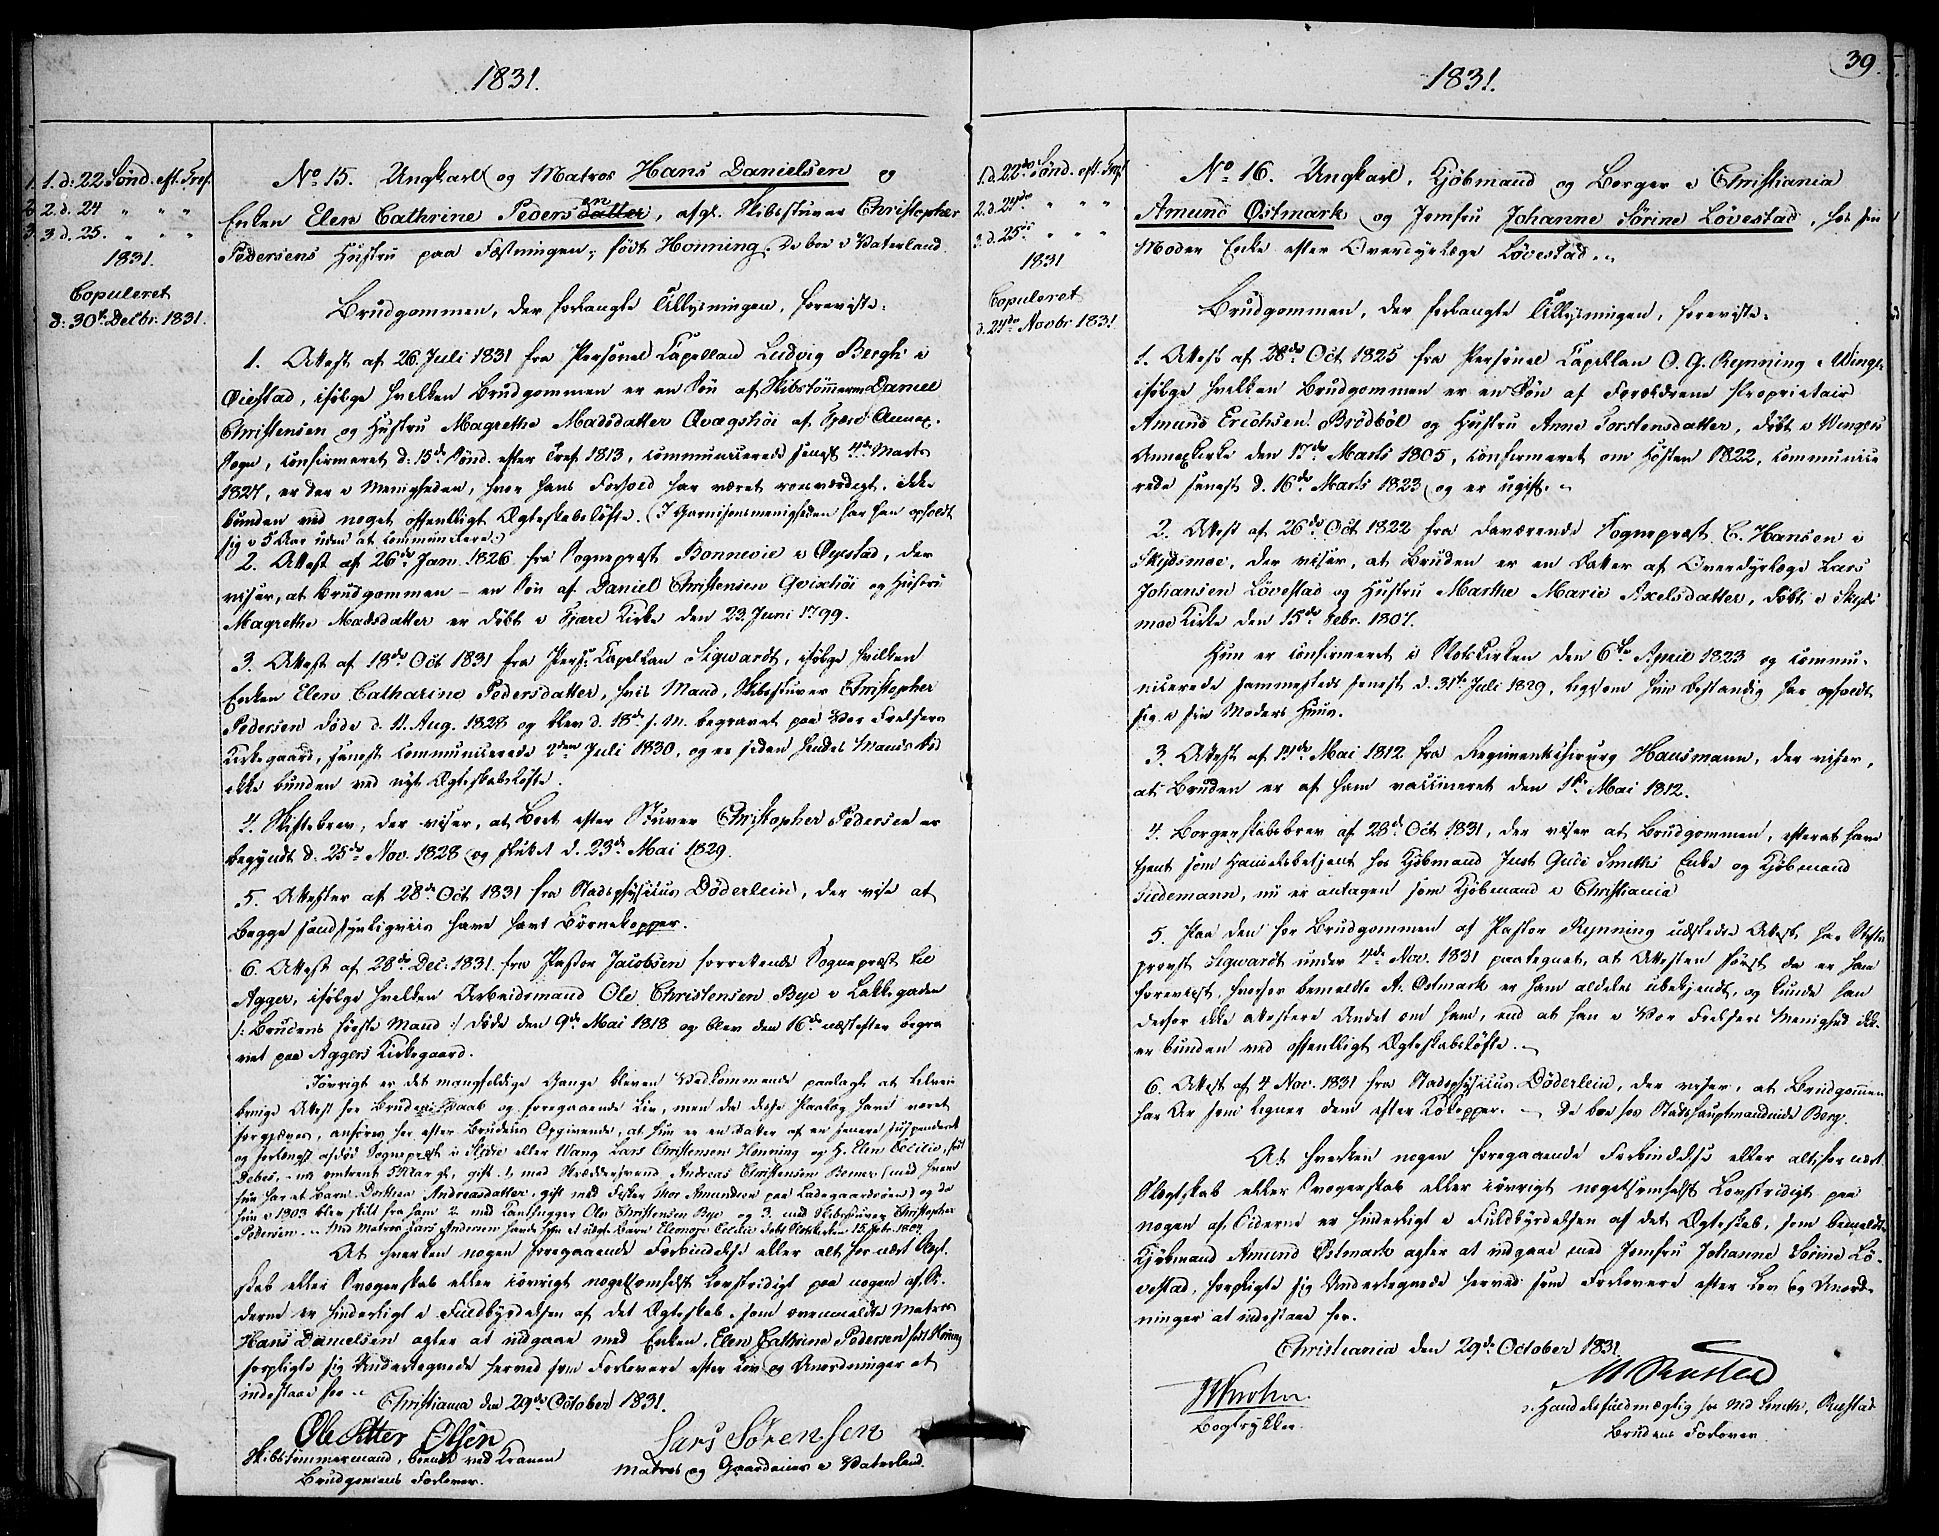 1831.
1. 1. d: 22 Sønd. eft. Tref.
2. 2. d. 24 " " "
3. 3. d. 25. " " "
1831.
Copuleret
d: 30te Decbr. 1831.
No 15. Ungkarl og Matros Hans Danielsen og
Enken Elen Cathrine Pedersdatter, afgl. Skibsstuver Christopher
Pedersens Hustru paa Fæstningen, født Honning. De boe i Vaterland
Brudgommen, der forlangte Tillysningen, foreviste:
1. Attest af 26. Juli 1831 fra Personel Capellan Ludvig Bergh i
Øiestad, ifølge hvilken Brudgommen er en Søn af Skibstømmerm. Daniel
Christensen og Hustru Magrethe Madsdatter Qvægshöi af Fjære Annex-
Sogn, confirmeret d. 15de Sønd. efter Tref. 1813, communicerede senest 4de Marts
1827, er der i Menigheden, hvor hans Forhold har været roesværdigt, ikke
bunden ved noget offentligt Ægteskabsløfte. (I Garnisonsmenigheden har han opholdt
sig i 5 Aar uden at communicere.)
2. Attest af 26de Jan. 1826 fra Sognepræst Bonnevie i Øyestad, der
viser, at Brudgommen – en Søn af Daniel Christensen Qvixhöi og Hustru
Magrethe Madsdatter er døbt i Fjære Kirke den 23. Juni 1799.
3. Attest af 18de Oct 1831 fra Pers: Capellan Sigwardt, ifølge hvilken
Enken Elen Catharine Pedersdatter, hvis Mand, Skibsstuver Christopher
Pedersen døde d. 11. Aug. 1828 og blev d. 18de s. M. begravet paa Vor Frelsers
Kirkegaard, senest communicerede 2den Juli 1830, og er siden hendes Mands Død
ikke bunden ved nyt Ægteskabsløfte.
4. Skiftebrev, der viser, at Boet efter Stuver Christopher Pedersen er
begyndt d. 25de Nov. 1828 og sluttet d. 23de Mai 1829.
5. Attester af 28de Oct 1831 fra Stadsphysicus Döderlein, der vise at
begge sandsynligviis have havt Børnekopper.
6. Attest af 28de Dec. 1831 fra Pastor Jacobsen forrettende Sognepræst til
Agger, ifølge hvilken Arbeidsmand Ole Christensen Bye i Lakkegaden
/: Brudens første Mand :/ døde den 9de Mai 1818 og blev den 16de næstefter begra
vet paa Aggers Kirkegaard.
Iøvrigt er det mangfoldige Gange bleven Vedkommende paalagt at tilveie
bringe Attest for Brudens Daab og foregaaende Liv, men da disse Paalæg have været
forgjæves, anføres her efter Brudens Opgivende, at hun er en Datter af en senere suspenderet
og forlængst afdød Sognepræst i Slidre eller Vang Lars Christensen Honning og H. Elen Cecilie, født
Debes, – nu omtrent 54 Aar gl., gift 1, med Skræddersvend Andreas Christensen Bemer (med hvem
hun har et Barn Dorthea Andreasdatter, gift med Fisker Thor Amundsen paa Ladegaardsøen) og da
hun i 1803 blev skilt fra ham 2 med Tømhugger Ole Christensen Bye og 3. med Skibsstuver Christopher
Pedersen. – Med Matros Lars Andersen havde hun et uægt. Barn Eleonore Cecilie døbt Slotskirken 15. Febr. 1807.
At hverken nogen foregaaende Forbindelse eller alt for nært Slægt-
skab eller Svogerskab eller iøvrigt nogetsomhelst Lovstridigt paa nogen af Si-
derne er hinderligt i Fuldbyrdelsen af det Ægteskab, som ovenmeldte Matros
Hans Danielsen agter at indgaae med Enken Elen Cathrine Pedersen født Honning
forpligte sig Undertegnede herved som Forlovere efter Lov og Anordninger at
indestaae for.
Christiania den 29de October 1831.
Ole Petter Olsen
Skibstømmermand, boende ved Kranen
Brudgommens Forlover.
Lars Sörensen
Matros og Gaardeier i Vaterland.
39.
1831.
1. d. 22de Sønd. eft. Tref.
2. d. 24de " " "
3. d. 25de " " "
1831
Copuleret
d. 24de Novbr 1831
No 16. Ungkarl, Kjøbmand og Borger i Christiania
Amund Østmark og Jomfru Johanne Sörine Lövestad, hos sin
Moder Enke efter Overdyrlæge Lövestad.
Brudgommen, der forlangte Tillysningen, foreviste:
1. Attest af 28de Oct 1825 fra Personel Capellan O. G. Rynning i Winger
ifølge hvilken Brudgommen er en Søn af Forældrene Proprietair
Amund Erichsen Brödböl og Hustru Anne Torstensdatter, døbt i Wingers
Annexkirke den 17de Marts 1805, confirmeret om Høsten 1822, communice
rede senest d. 16de Marts 1823 og er ugift.
2. Attest af 26de Oct 1822 fra daværende Sognepræst C. Hansen i
Skydsmoe, der viser, at Bruden er en Datter af Overdyrlæge Lars
Johansen Lövestad og Hustru Marthe Marie Axelsdatter, døbt i Skyds
moe Kirke den 15de Febr. 1807.
Hun er confirmeret i Slotskirken den 6te April 1823 og commu-
nicerede sammesteds senest d. 31te Juli 1829, ligesom hun bestandig har opholdt
sig i sin Moders Huus.
3. Attest af 11de Mai 1812 fra Regimentschirurg Hausmann, der viser,
at Bruden er af ham vaccineret den 1ste Mai 1812.
4. Borgerskabsbrev af 28de Oct 1831, der viser at Brudgommen, efterat have
tjent som Handelsbetjent hos Kjøbmand Just Gude Smiths Enke og Kjøbmand
Tiedemann, nu er antagen som Kjøbmand i Christiania
5. Paa den for Brudgommen af Pastor Rynning udstedte Attest har Stifts
provst Sigwardt under 4de Nov. 1831 paategnet, at Attesten først da er ham
foreviist, hvorfor bemeldte A. Østmark er ham aldeles ubekjendt, og kunde han
derfor ikke attestere Andet om ham, end at han i Vor Frelsers Menighed ikk
er bunden ved offentligt Ægteskabsløfte.
6. Attest af 4 Nov. 1831 fra Stadsphysicus Döderlein, der viser, at Brudgommen
har Ar som ligner dem efter Kokopper. – De boe hos Stadshauptmandinde Berg.
At hverken nogen foregaaende Forbindelse eller altfor nært
Slægtskab eller Svogerskab eller iøvrigt nogetsomhelst Lovstridigt paa
nogen af Siderne er hinderligt i Fuldbyrdelsen af det Ægteskab, som bemeldte
Kjøbmand Amund Østmark agter at indgaae med Jomfru Johanne Sörine Lö-
vestad, forpligte sig Undertegnede herved som Forlovere efter Lov og Anord-
ninger at indestaae for.
Christiania den 29de October 1831.
Bogtrykker.
Handelsfuldmægtig hos Md Smith,
Brudens Forlover